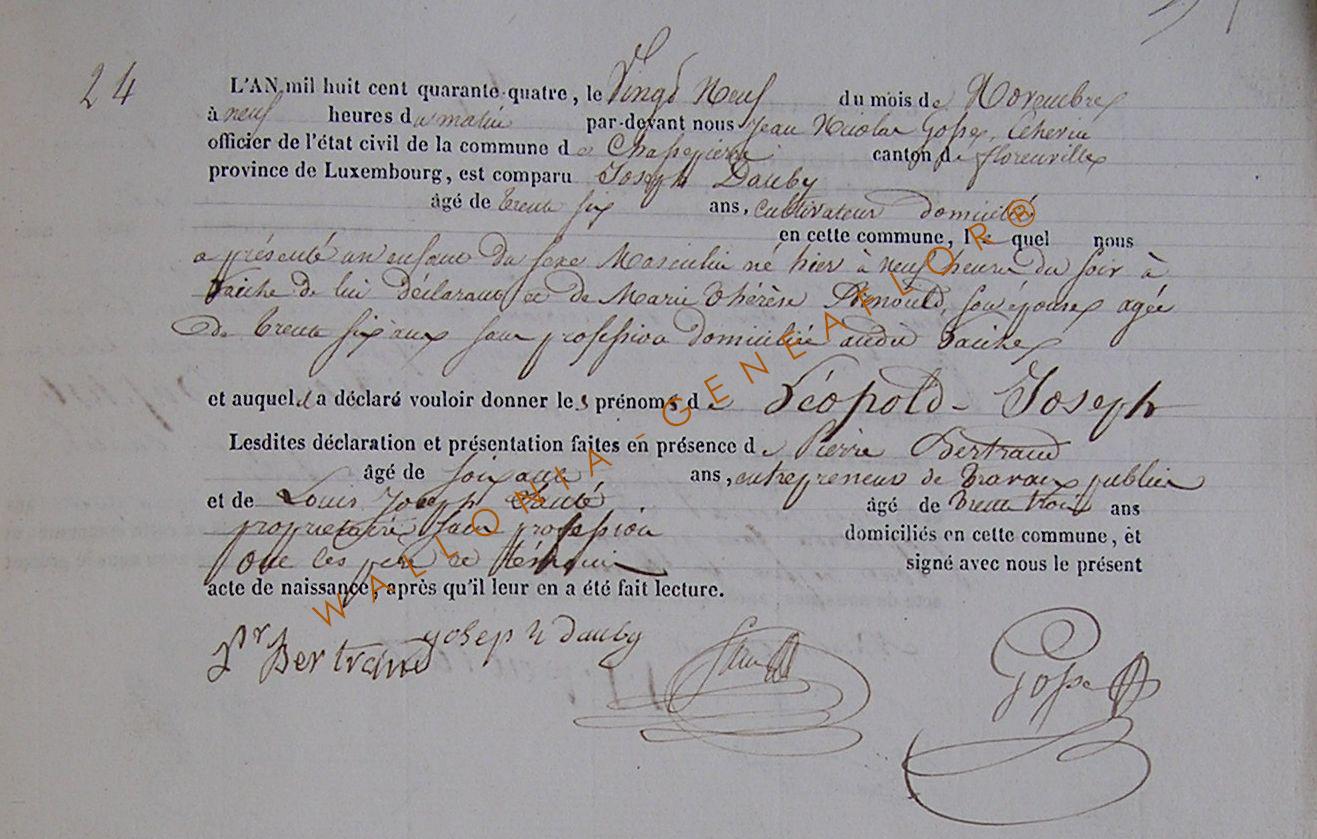 24
L'AN mil huit cent quarante-quatre, le Vingt Neuf du mois de Novembre
à neuf heures du matin par-devant nous Jean Nicolas Gosse, Echevin
officier de l'état civil de la commune de Chassepierre canton de florenville
province de Luxembourg, est comparu Joseph Dauby
âgé de trente six ans, cultivateur domicilié
en cette commune, lequel nous
a présenté un enfant du sexe Masculin né hier à neuf heures du soir à
Laiche de lui déclarant et de Marie thérèse Arnould, son épouse agée
de trente six ans sans profession domiciliée audit Laiche
et auquel il a déclaré vouloir donner les prénoms de Léopold-Joseph
Lesdites déclaration et présentation faites en présence de Pierre Bertrand
âgé de soixante ans, entrepreneur de travaux publics
et de Louis Joseph âgé de trente trois ans
proprietaire sans profession domiciliés en cette commune, et
ont les père et témoins signé avec nous le présent
acte de naissance, après qu'il leur en a été fait lecture.
Pr Bertrand Joseph dauby Gosse
WALLONIA-GENEAFLOR®